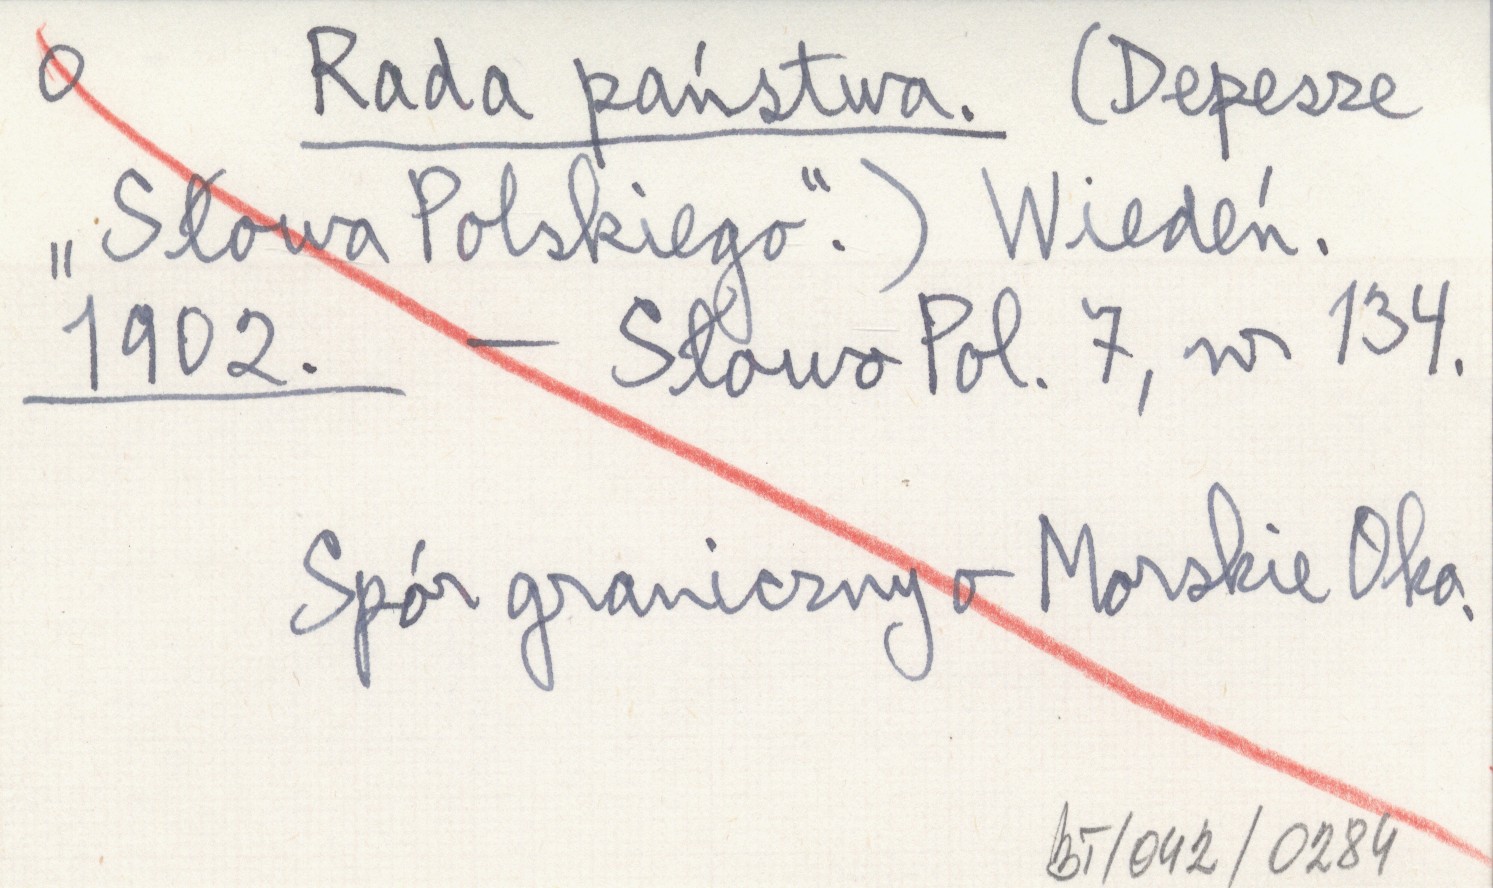 O Rada państwa. (Depesze
„Słowa Polskiego“.) Wiedeń.
1902. — Słowo Pol. 7, nr 134.
Spór graniczny o Morskie Oko.
BT/042/0284